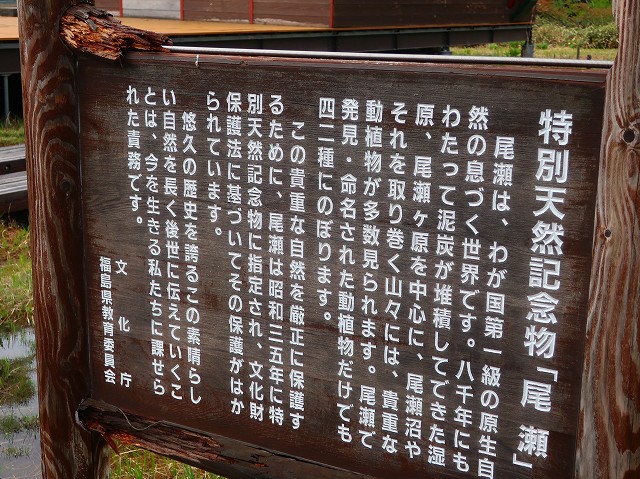 特別天然記念物「尾瀬」
尾瀬は、わが国第一級の原生自
然の息づく世界です。八千年にも
わたって泥炭が堆積してできた湿
原、尾瀬ヶ原を中心に、尾瀬沼や
それを取り巻く山々には、貴重な
動植物が多数見られます。尾瀬で
発見・命名された動植物だけでも
四二種にのぼります。
この貴重な自然を厳正に保護す
るために、尾瀬は昭和三五年に特
別天然記念物に指定され、文化財
保護法に基づいてその保護がはか
られています。
悠久の歴史を誇るこの素晴らし
い自然を長く後世に伝えていくこ
とは、今を生きる私たちに課せら
れた責務です。
文化庁
福島県教育委員会